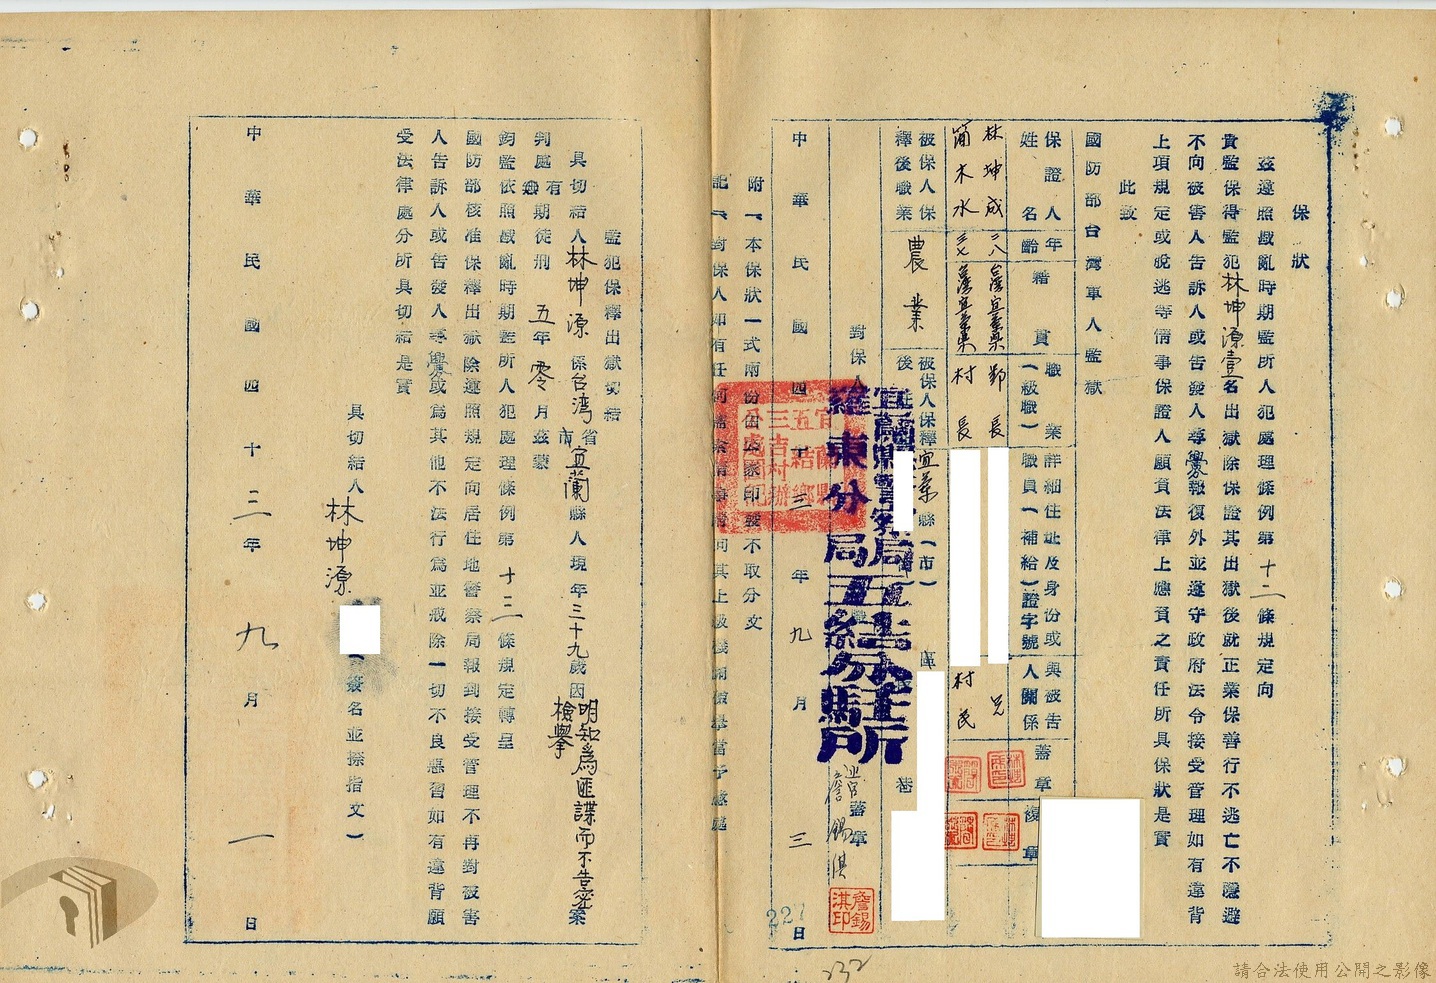 保狀
茲遵照戡亂時期監所人犯處理條例第十二條規定向
貴監保得監犯林坤源壹名出獄除保證其出獄後就正業保善行不逃亡不隱避
不向被害人告訴人或告發人尋釁報復外並遵守政府法令接受管理如有違背
上項規定或脫逃等情事保證人願負法律上應負之責任所具保狀是實
此致
國防部台灣軍人監獄
保證人姓名 年齡 籍貫 職業(級職) 詳細住址及身份或職員(補給)證字號 與被告人關係 蓋章 復章
林坤成 三八 台灣宜蘭縣 鄰長 兄
簡木水 台灣宜蘭縣 村長 村民
被保人保釋後職業 農業 被保人保釋後 宜蘭縣(市) 區 巷
對保人
宜蘭縣警察局
羅東分局五結分駐所
警員 詹錫淇 蓋章
詹錫淇印
中華民國四十三年九月三日
227
附一、本保狀一式兩份由公家印發不取分文
記一、對保人如有任
監犯保釋出獄切結
具切結人林坤源係台灣省市宜蘭縣人現年三十九歲因明知為匪諜而不告密檢舉案
判處有無期徒刑五年零月茲蒙
鈞監依照戡亂時期監所人犯處理條例第十三條規定轉呈
國防部核准保釋出獄除遵照規定向居住地警察局報到接受管理不再對被害
人告訴人或告發人尋釁或為其他不法行為並戒除一切不良惡習如有違背願
受法律處分所具切結是實
具切結人 林坤源 (簽名並捺指文)
中華民國四十三年九月一日
232
請合法使用公開之影像